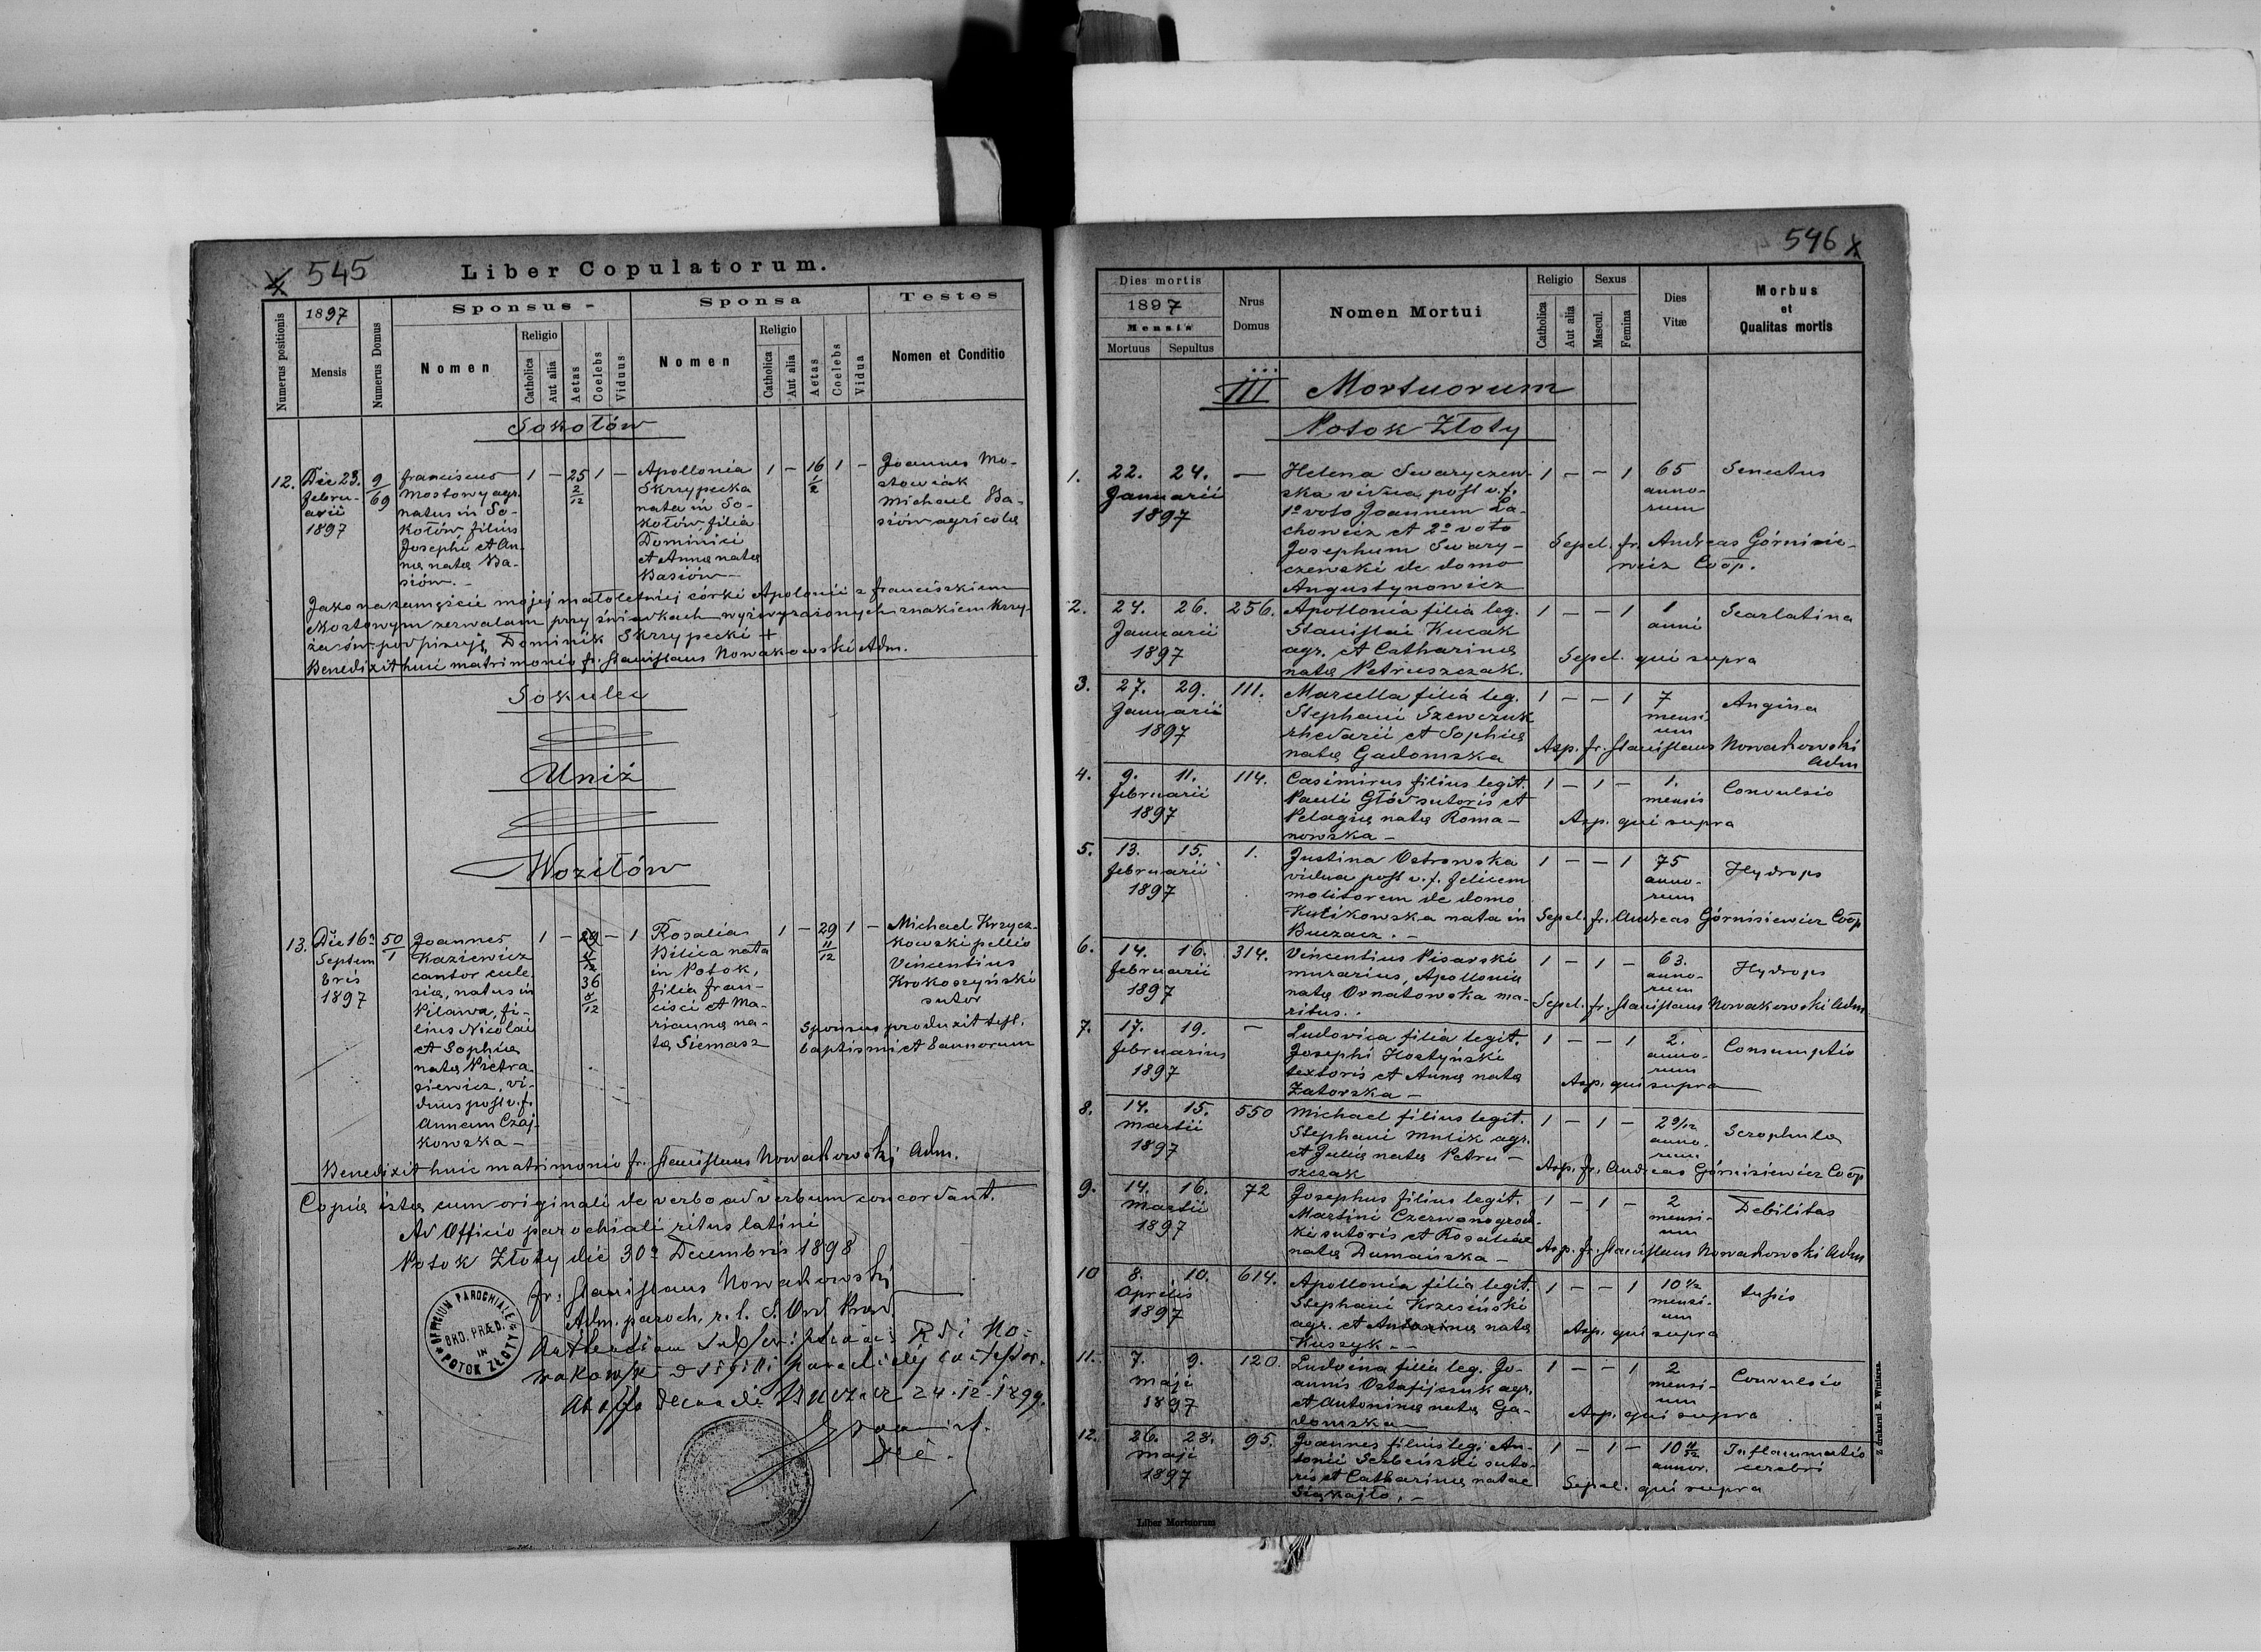 545
Liber Copulatorum.
Numerus positionis
1897
Mensis
Numerus Domus
Sponsus
Nomen
Religio
Catholica
Aut alia
Aetas
Coelebs
Viduus
Sponsa
Nomen
Religio
Catholica
Aut alia
Aetas
Coelebs
Vidua
Testes
Nomen et Conditio
Sokołów
12. Die 23. Februarii 1897
9/69
Franciscus
Mostowy agr.
natus in So-
kołów, filius
Josephi et An-
na nata Ba-
siów. -
1 - 25 2/12 1 -
Apollonia
Skrzypecka
nata in So-
kołów filia
Dominici
et Anna nata
Basiów -
1 - 16 1/2 1 -
Joannes Mo-
stowiak
Michael Ba-
siów agricolæ
Jako na zamęście mojej małoletniej córki Apolonii z Franciszkiem
Mostowym zezwalam przy świadkach wyżwyrażonych znakiem krzy-
ża św. podpisuję Dominik Skrzypecki +
Benedixit huic matrimonio fr. Stanislaus Nowakowski Adm.
Sokulec
Uniż
Woziłów
13. Die 16a Septembris 1897
50/1
Joannes
Kaziewicz
cantor eccle-
siæ, natus in
Pilawa, fi-
lius Nicolai
et Sophiæ
natæ Pietra-
siewicz, vi-
duus post v. f.
Annam Czaj-
kowska -
1 - 29 36 8/12 - 1
Rosalia
Bilica nata
in Potok,
filia Fran-
cisci et Ma-
riannæ na-
tæ Siemasz
1 - 29 11/12 1 -
Michael Krzycz-
kowski pellio
Vincentius
Krokoszyński
sutor
Sponsus produxit test.
baptismi et bannorum
Benedixit huic matrimonio fr. Stanislaus Nowakowski Adm.
Copiæ istæ cum originali de verbo ad verbum concordant.
Ab Officio parochiali ritus latini
Potok Złoty die 30a Decembris 1898
fr. Stanislaus Nowakowski
Adm. paroch. r. l. S. Ord. Præd
OFFICIUM PAROCHIALE
ORD. PRÆD.
IN
POTOK ZŁOTY
Buczacz 24-12-1899.
546
Dies mortis
1897
Mensis
Mortuus
Sepultus
Nrus Domus
Nomen Mortui
Religio
Catholica
Aut alia
Sexus
Mascul.
Femina
Dies Vitæ
Morbus
et
Qualitas mortis
III Mortuorum
Potok Złoty
1. 22. 24. Januarii 1897 -
Helena Swaryczew-
ska vidua post v. f.
1o voto Joannem La-
chowicz et 2o voto
Josephum Swary-
czewski de domo
Augustynowicz
1 - - 1 65 annorum Senectus
Sepel. fr. Andreas Górnisie-
wicz Coop.
2. 24. 26. Januarii 1897 256.
Apollonia filia leg.
Stanislai Kucak
agr. et Catharinæ
natæ Petruszczak.
1 - - 1 1 anni Scarlatina
Sepel. qui supra
3. 27. 29. Januarii 1897 111.
Marcella filia leg.
Stephani Szewczuk
rhedarii et Sophiæ
natæ Gadomska
1 - - 1 7 mensium Angina
Asp. fr. Stanislaus Nowakowski
Adm
4. 9. 11. Februarii 1897 114.
Casimirus filius legit.
Pauli Głód sutoris et
Pelagiæ natæ Roma-
nowska -
1 - 1 - 1. mensis Convulsio
Asp. qui supra
5. 13. 15. Februarii 1897 1.
Justina Ostrowska
vidua post v. f. Felicem
molitorem de domo
Kulikowska nata in
Buczacz. -
1 - - 1 75 annorum Hydrops
Sepel. fr. Andreas Górnisiewicz Coop
6. 14. 16. Februarii 1897 314.
Vincentius Pisarski
murarius, Apollonia
natæ Ornatowska ma-
ritus.
1 - 1 - 63. annorum Hydrops
Sepel. fr. Stanislaus Nowakowski Adm
7. 17. 19. Februarius 1897 -
Ludovica filia legit.
Josephi Hostyński
textoris et Annæ natæ
Zatorska -
1 - - 1 2. annorum Consumptio
Asp. qui supra
8. 14. 15. Martii 1897 550
Michael filius legit.
Stephani Mulik agr.
et Juliæ natæ Petru-
szczak
1 - 1 - 2 9/12 annorum Scrophula
Asp. fr. Andreas Górnisiewicz Coop
9. 14. 16. Martii 1897 72
Josephus filius legit.
Martini Czerwonogrod-
ki sutoris et Rosaliæ
natæ Dumańska -
1 - 1 - 2 mensium Debilitas
Asp. fr. Stanislaus Nowakowski Adm
10 8. 10. Aprilis 1897 614.
Apollonia filia legit.
Stephani Krzesiński
agr. et Antoninæ natæ
Kuszyk. -
1 - - 1 10 1/2 mensium tussis
Asp. qui supra
11. 7. 9. Maji 1897 120.
Ludvina filia leg. Jo-
annis Ostafijczuk agr.
et Antoninæ natæ Ga-
domska
1 - - 1 2 mensium Convulsio
Asp. qui supra
12. 26. 28. Maji 1897 95.
Joannes filius leg. An-
tonii Serbeński suto-
ris et Catharinæ natae
Siąkajło. -
1 - 1 - 10 annor. Inflammatio
cerebri
Sepel. qui supra
Liber Mortuorum
Z drukarni E. Winiarza.